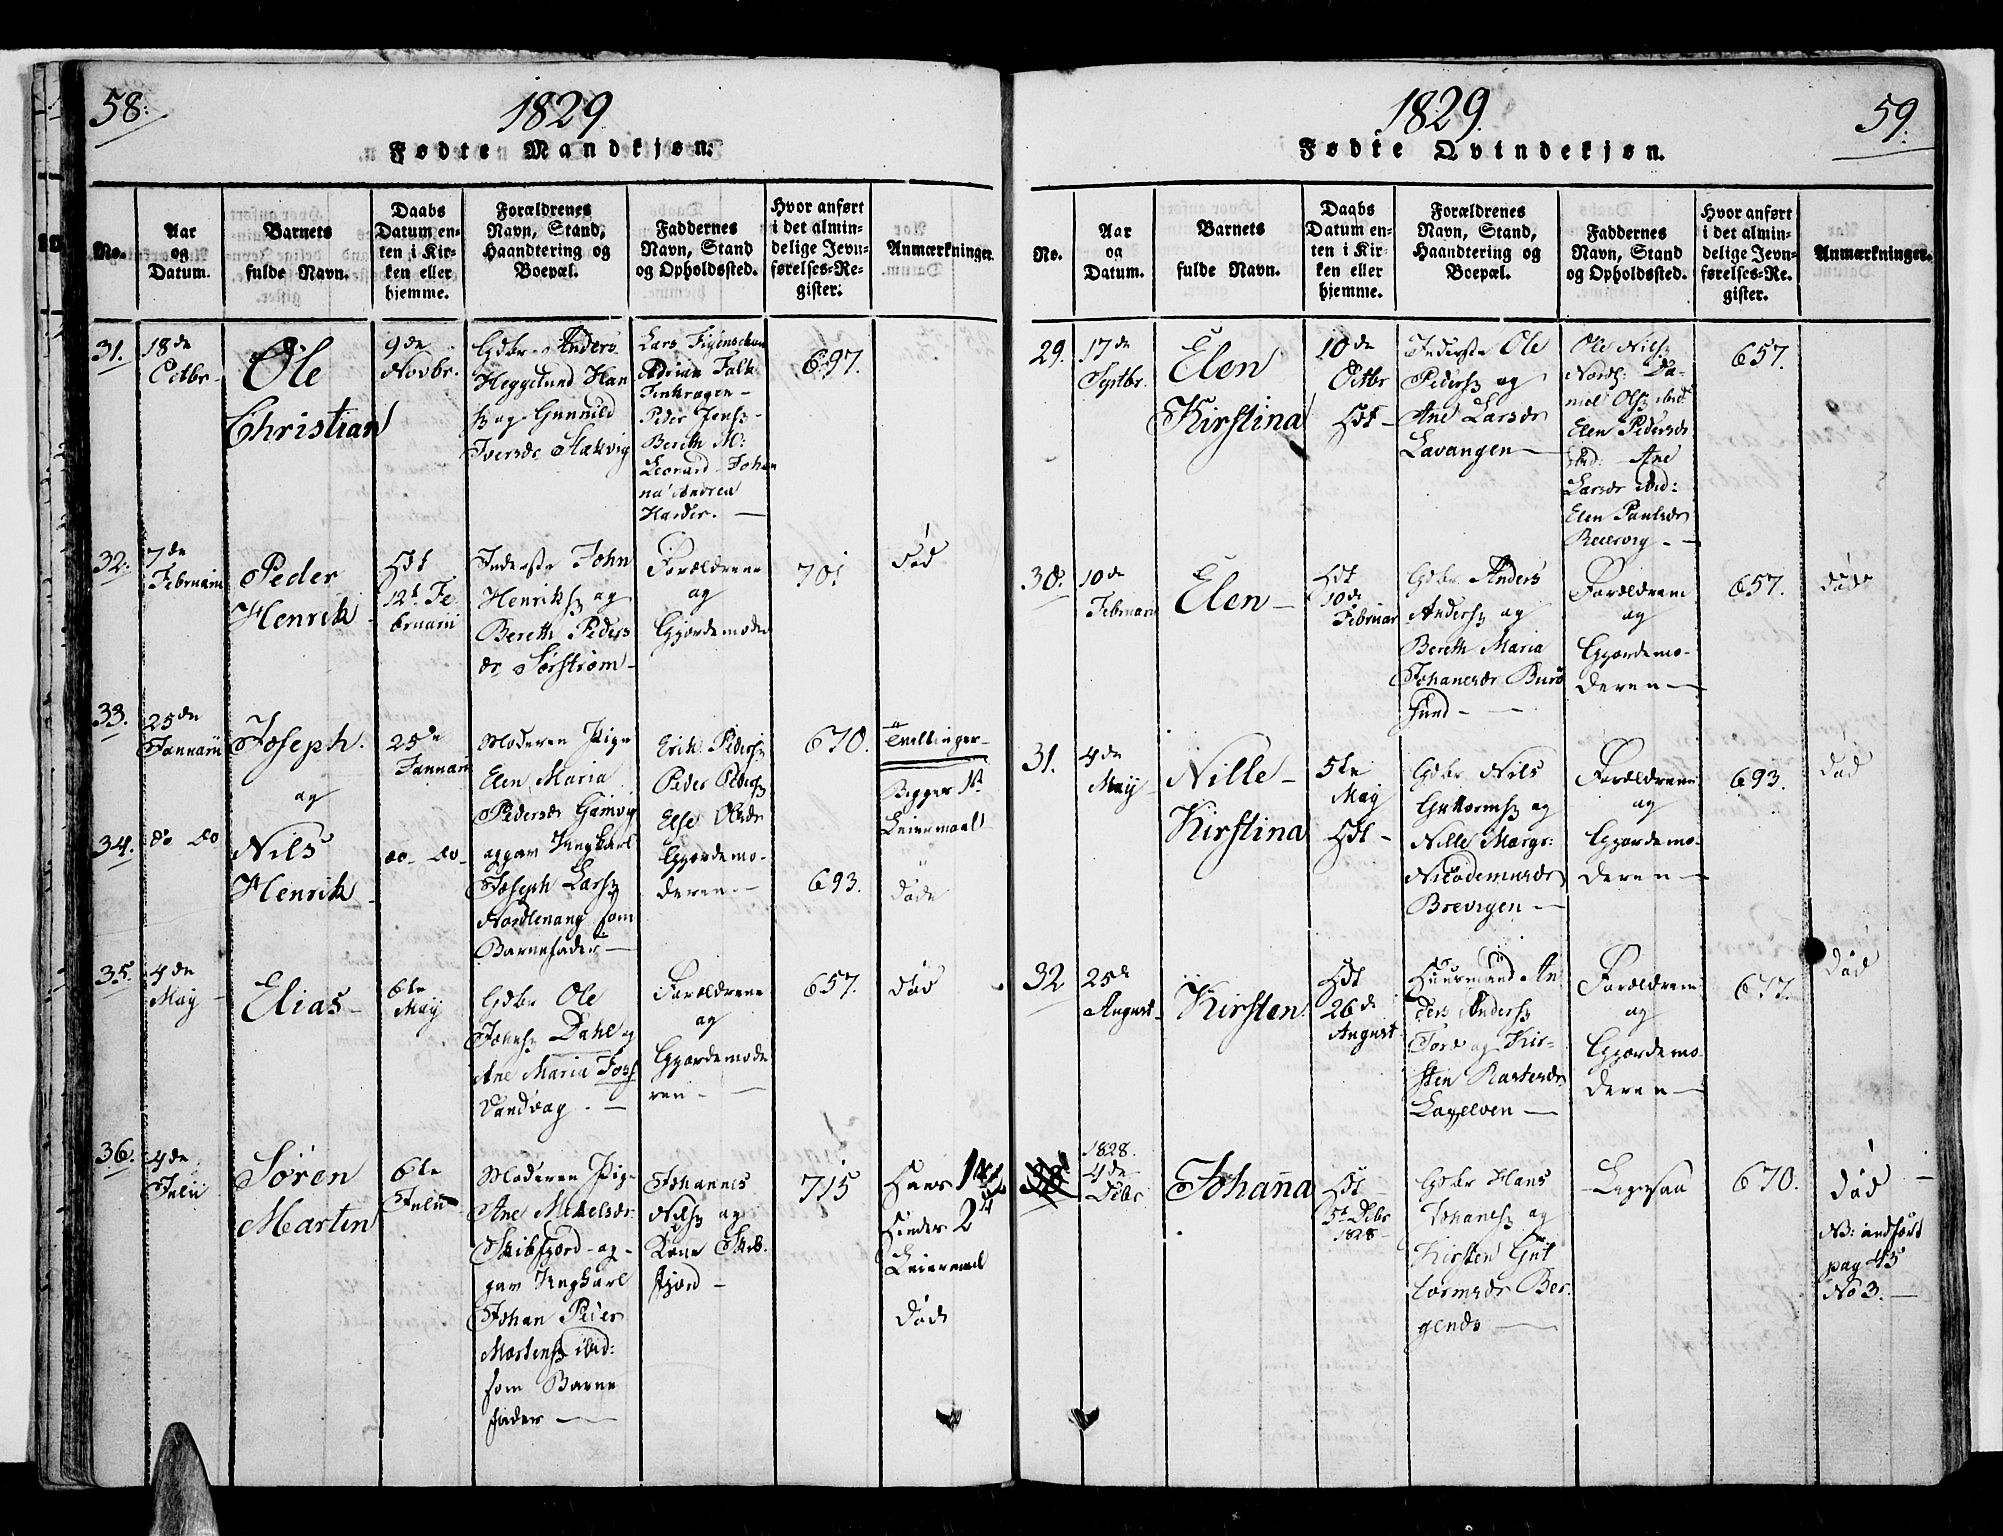 58.
1829
Fødte Mandkjøn.
No.
Aar
og
Datum.
Barnets
fulde Navn.
Daabs
Datum en-
ten i Kir-
ken eller
hjemme.
Forældrenes
Navn, Stand,
Haandtering og
Boepæl.
Faddernes
Navn, Stand
og Opholdssted.
Hvor anført
i det almin-
delige Jevn-
førelses-Re-
gister.
Anmærkninger.
31.
18de
Octbr
Ole
Christian
9de
Novbr.
Gdbr. Anders
Heggelund Han
og Gunnild
Iversdr
Lars Figenschau
Falk
Peder Jens
Bereth M:
Leonard Johan
na Andrea
Harder.
697.
32.
7de
Februarii
Peder
Henrik
Hdt
12t Fe
bruarii
Inderste John
Henriks og
Bereth Peders
dr Sørstrøm
Forældrene
og
Gjordemoder
701
død
33.
25de
Januarii
Joseph
og
25de
Januarii
Moderen Pige
Elen Maria
Pedersdr Gamvig
opgav Ungkarl
Joseph Lars
som
Barnefader
Erik Peders
Peder Peders
Else Olsdr
Gjordemo-
deren
670.
Tvillinger
Begges 1st
Leiermaal
34.
do do
Nils
Henrik
do do
693.
døde
35.
4de
May
Elias
6te
May
Gdbr Ole
Johns Dahl og
Ane Maria
Sandvaag
Forældrene
og
Gjordemode
ren
657.
død
36.
4de
Julii
Søren
Martin
6te
Julii
Moderen Pige
Ane Mikelsdr
Skibsfjord op-
gav Ungkarl
Johan Peder
Mortens ibid:
som Barne
fader
Johannes
Nils og
Kone Skib
fjord
715
Hans 1ste
Hendes 2det
Leiermaal
Død
59.
1829.
Fødte Qvindekjøn.
No.
Aar
og
Datum.
Barnets
fulde Navn.
Daabs
Datum en-
ten i Kir-
ken eller
hjemme.
Forældrenes
Navn, Stand,
Haandtering og
Boepæl.
Faddernes
Navn, Stand
og Opholdssted.
Hvor anført
i det almin-
delige Jevn-
førelses-Re-
gister.
Anmærkninger.
29.
17de
Septbr.
Elen
Kirstina
10de
Octbr
Hdt
Inderste Ole
Peders og
Ane Larsdr
Lavangen
Ole Nils
Da-
niel Ols ibid
Elen Pedersdr
ibid: Ane
Larsdr ibid:
Elen Paulsdr
657.
30.
10de
Februarii
Elen
Hdt
10de
Februar
Gdbr Anders
Anders og
Bereth Maria
Johanesdr Burø
sund
Forældrene
og
Gjordemo-
deren
657.
død
31.
4de
May
Nille
Kirstina
5te
May
Hdt
Gdbr Nils
Guttorms og
Nille Margr:
Nicodemusdr
Brevigen
Forældrene
og
Gjordemo-
deren
693.
Død
32
25de
August
Kirsten
Hdt
26de
August
Huusmand An
ders Anders
Tore og Kir-
sten
Laxelven
Forældrene
og
Gjordemo-
deren
677.
Død
1828.
4de
Debr
Johana
Hdt
5t Debr
1828
Gdbr Hans
Johanes og
Kirsten Gut
tormsdr Ber-
gends
670.
Død
NB: anført
pag 45
No 3.